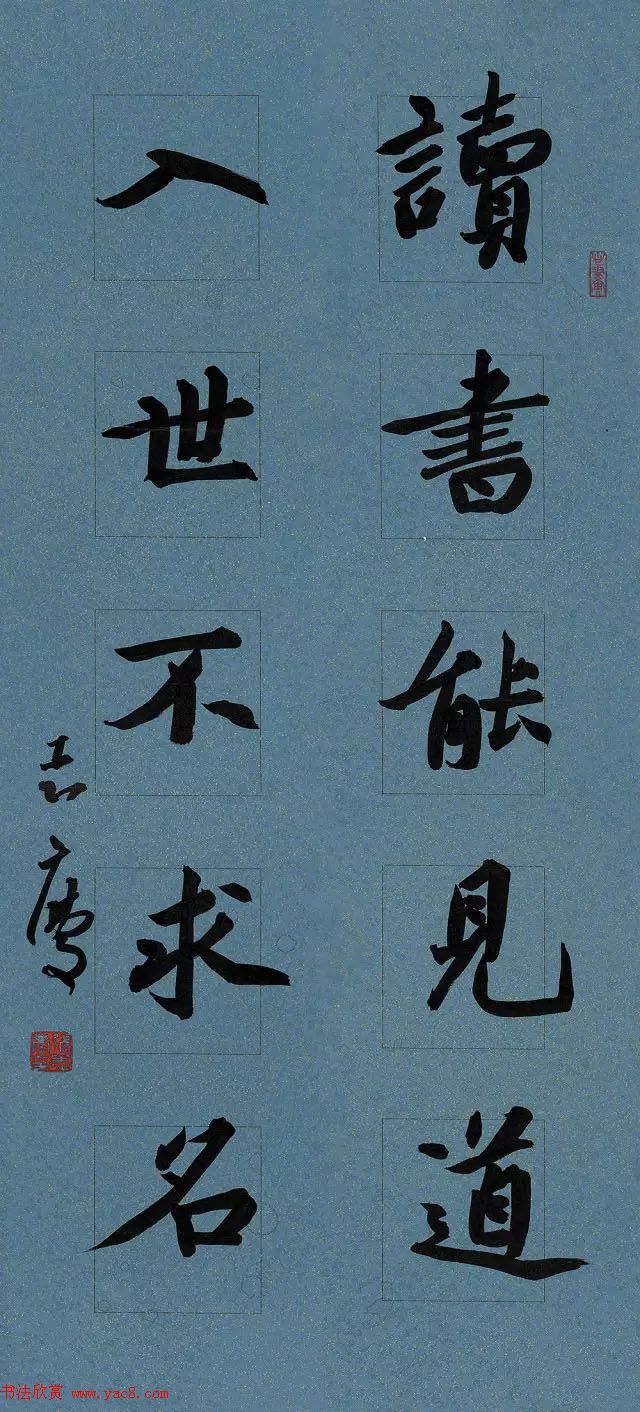 讀書能見道
入世不求名
志鹰
书法欣赏 www.yac8.com